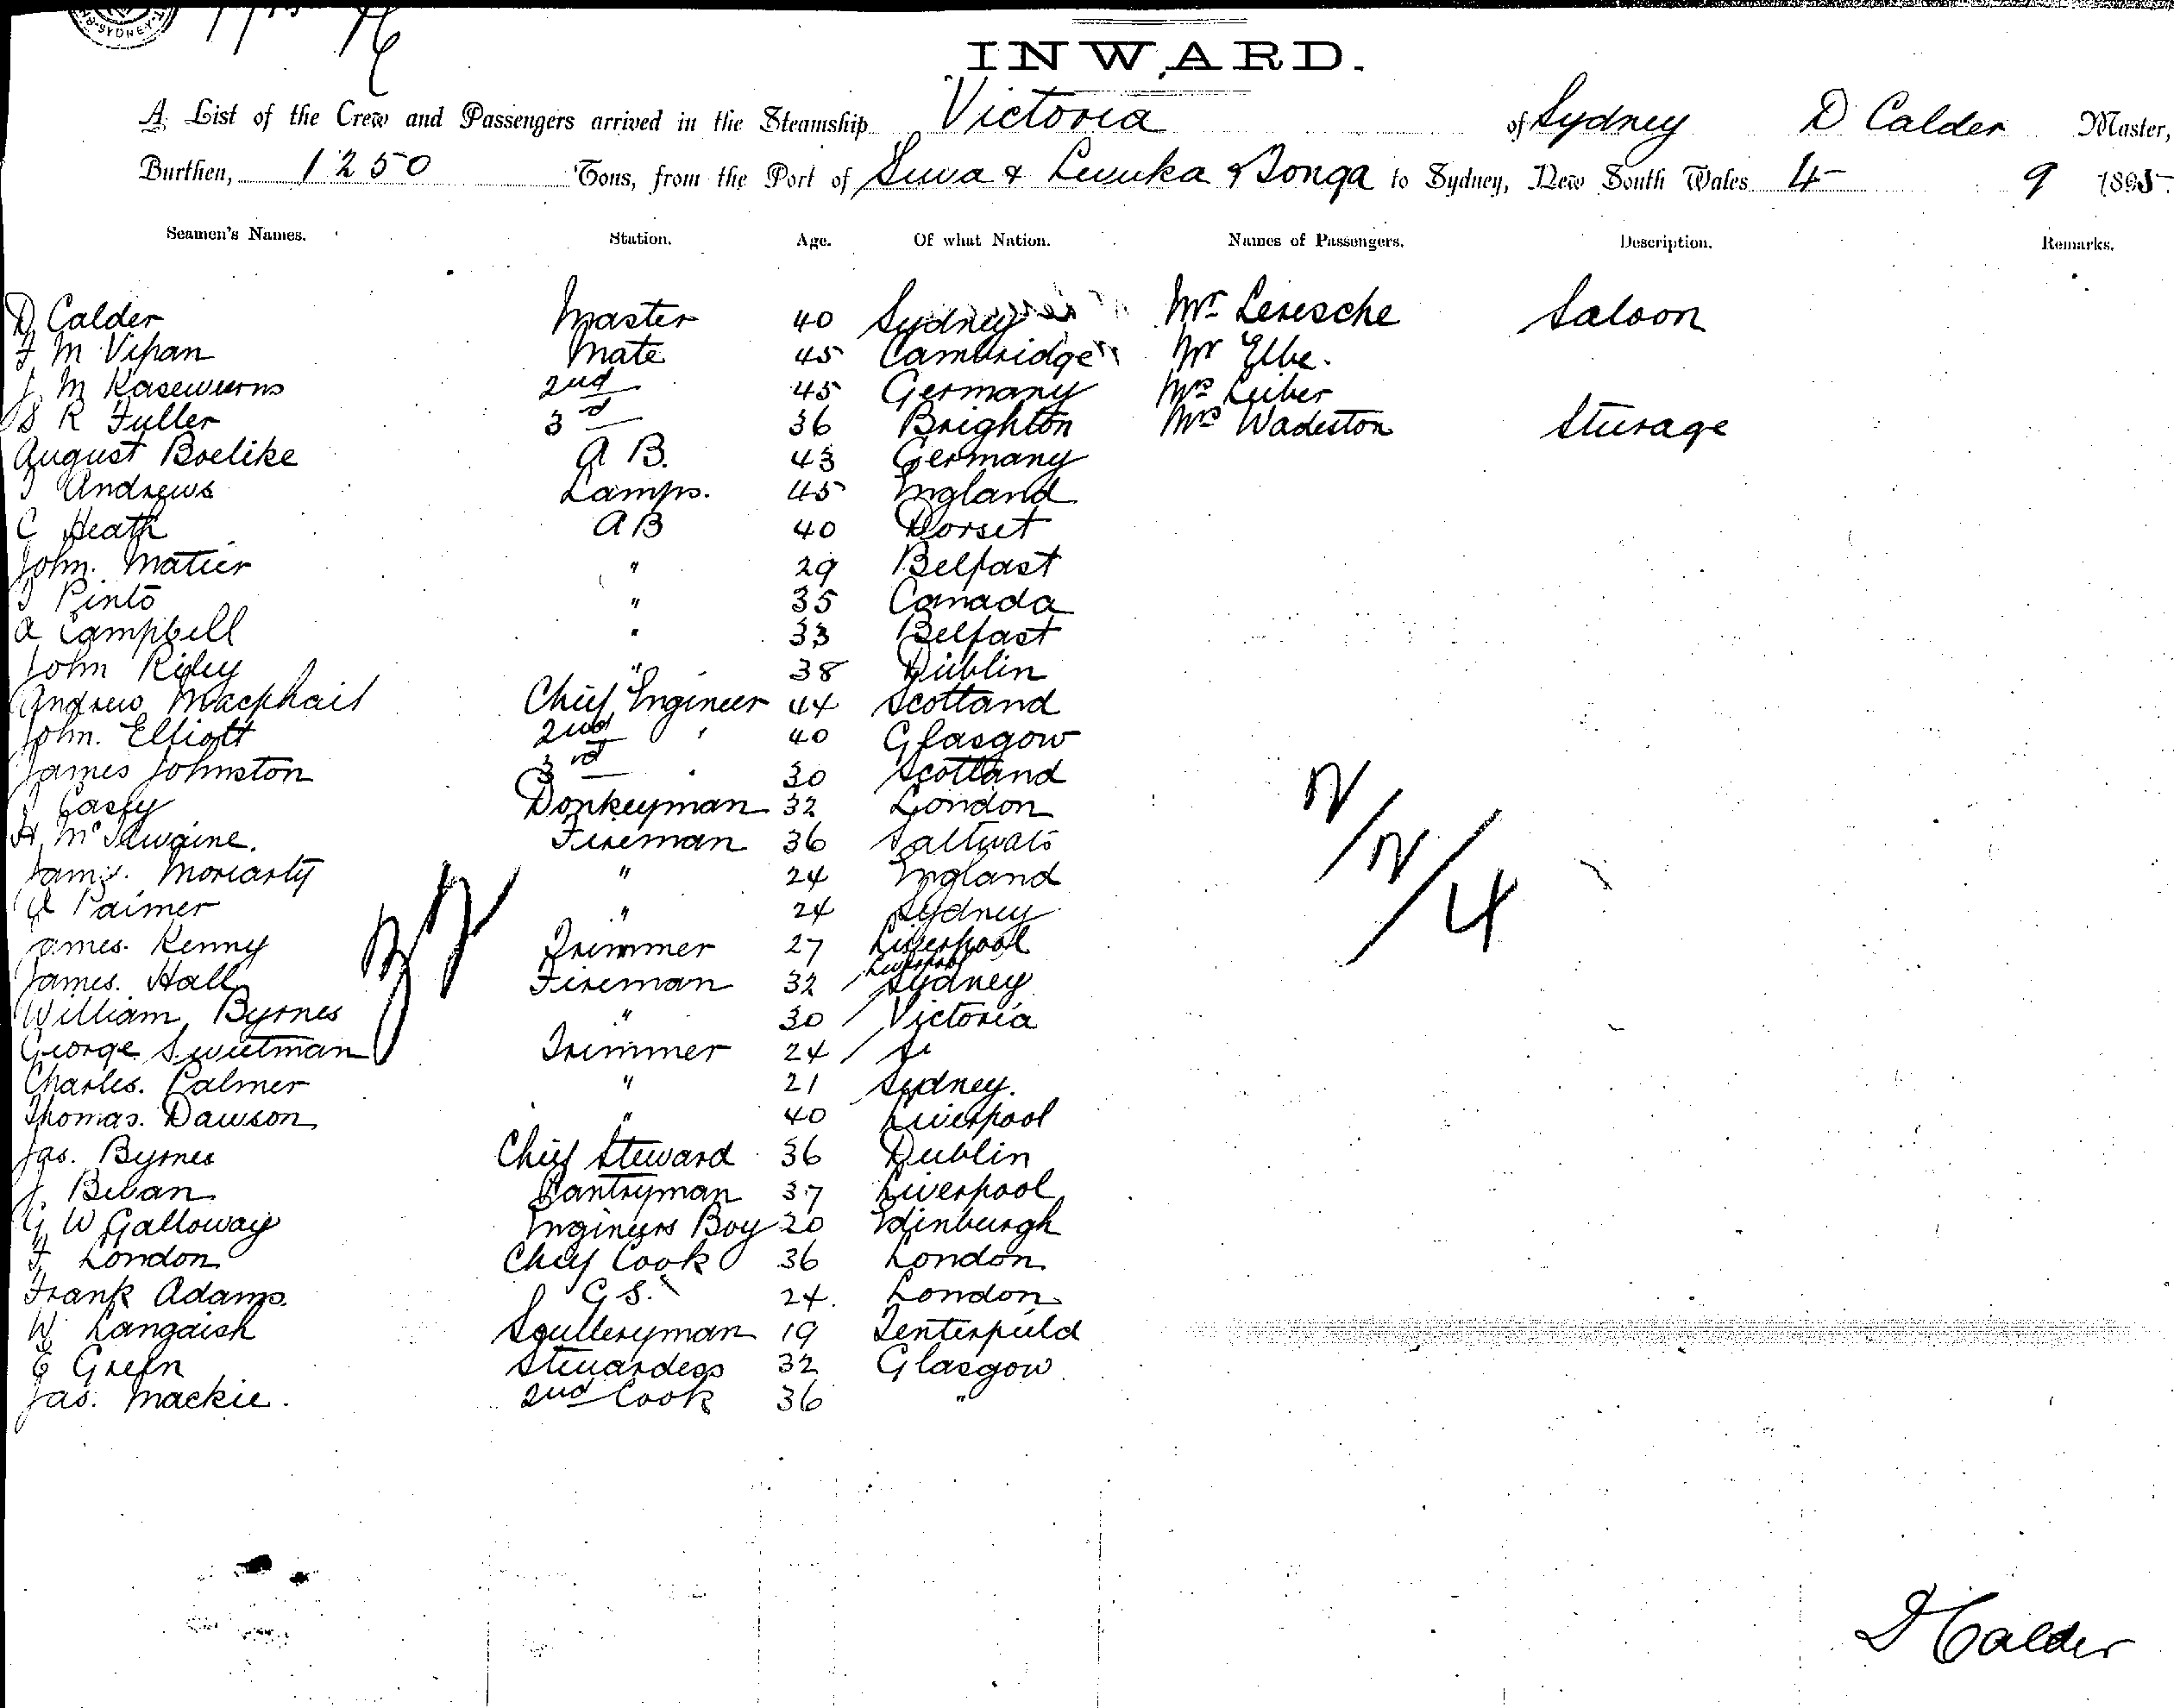 SYDNEY
INWARD.
A List of the Crew and Passengers arrived in the Steamship Victoria of Sydney D Calder Master,
Burthen, 1250 Tons, from the Port of Suva & Levuka & Tonga to Sydney, New South Wales 4 9 1895.
Seamen's Names. Station. Age. Of what Nation. Names of Passengers. Description. Remarks.
D Calder Master 40 Sydney Mr Leresche Saloon
F M Vipan Mate 45 Cambridge Mr Elbe.
J M 2nd 45 Germany Mrs Leiber
S R Fuller 3rd 36 Brighton Mrs Wadeston Steerage
August Boelike A B. 43 Germany
J Andrews Lamps. 45 England
C Heath A B 40 Dorset
John. Matier " 29 Belfast
J Pinto " 35 Canada
A Campbell " 33 Belfast
John Riley " 38 Dublin
Andrew Macphail Chief Engineer 44 Scotland
John. Elliott 2nd " 40 Glasgow
James Johnston 3rd " 30 Scotland
Casey Donkeyman 32 London
H McIlwaine. Fireman 36 Saltwats
Jams. Moriarty " 24 England
Palmer " 24 Sydney
James. Kenny Trimmer 27 Liverpool
James. Hall Fireman 32 Liverpool Sydney
William Byrnes " 30 Victoria
George Sweetman Trimmer 24
Charles. Palmer " 21 Sydney.
Thomas. Dawson " 40 Liverpool
Jas. Byrnes Chief Steward 36 Dublin
J. Bevan Pantryman 37 Liverpool
G W Galloway Engineers Boy 20 Edinburgh
F London Chief Cook 36 London
Frank Adams. G S. 24. London
W Langdish Sculleryman 19 Tenterfield
E Green Stewardess 32 Glasgow
Jas. Mackie. 2nd Cook 36 "
D Calder